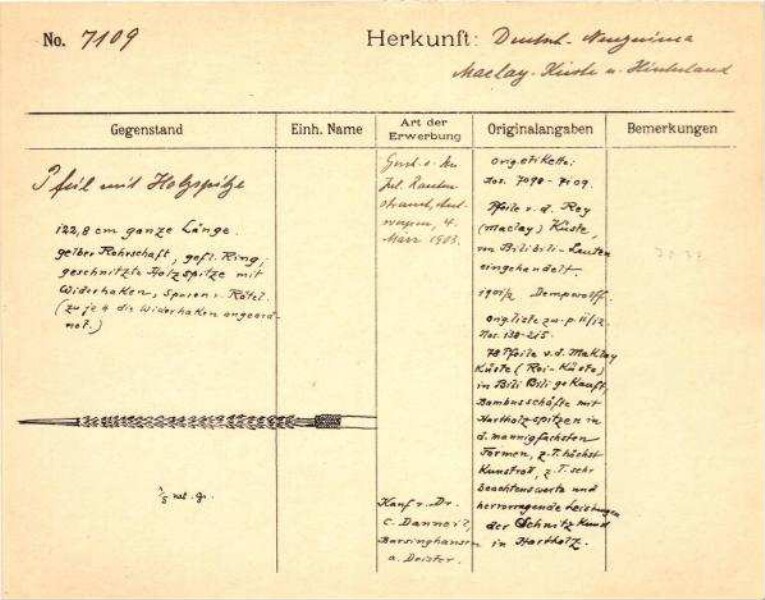 No. 7109
Herkunft: Deutsch-Neuguinea
Maclay-Küste u. Hinterland
Gegenstand
Einh. Name
Art der Erwerbung
Originalangaben
Bemerkungen
Pfeil mit Holzspitze
122,8 cm ganze Länge.
gelber Rohrschaft, gefl. Ring,
geschnitzte Holzspitze mit
Widerhaken, Spuren v. Rötel.
(zu je 4 die Widerhaken angeord-
net.)
1/5 nat. Gr.
Jul. Rauten-
strauch, Ant-
werpen, 4.
März 1903.
Kauf v. Dr.
C. Danneil,
Barsinghausen
a. Deister.
Orig. etikette:
Nos. 7098 - 7109.
Pfeile v. d. Rey
(Maclay) Küste,
von Bilibili-Leuten
eingehandelt.
Dempwolff.
Orig. liste
Nos. 138-215.
78 Pfeile v. d. Maklay
Küste (Rei-Küste)
in Bili Bili gekauft,
Bambusschäfte mit
Hartholzspitzen in
d. mannigfachsten
Formen, z. T. höchst
Kunstvoll, z. T. sehr
beachtenswerte und
hervorragende Leistungen
der Schnitzkunst
in Hartholz.